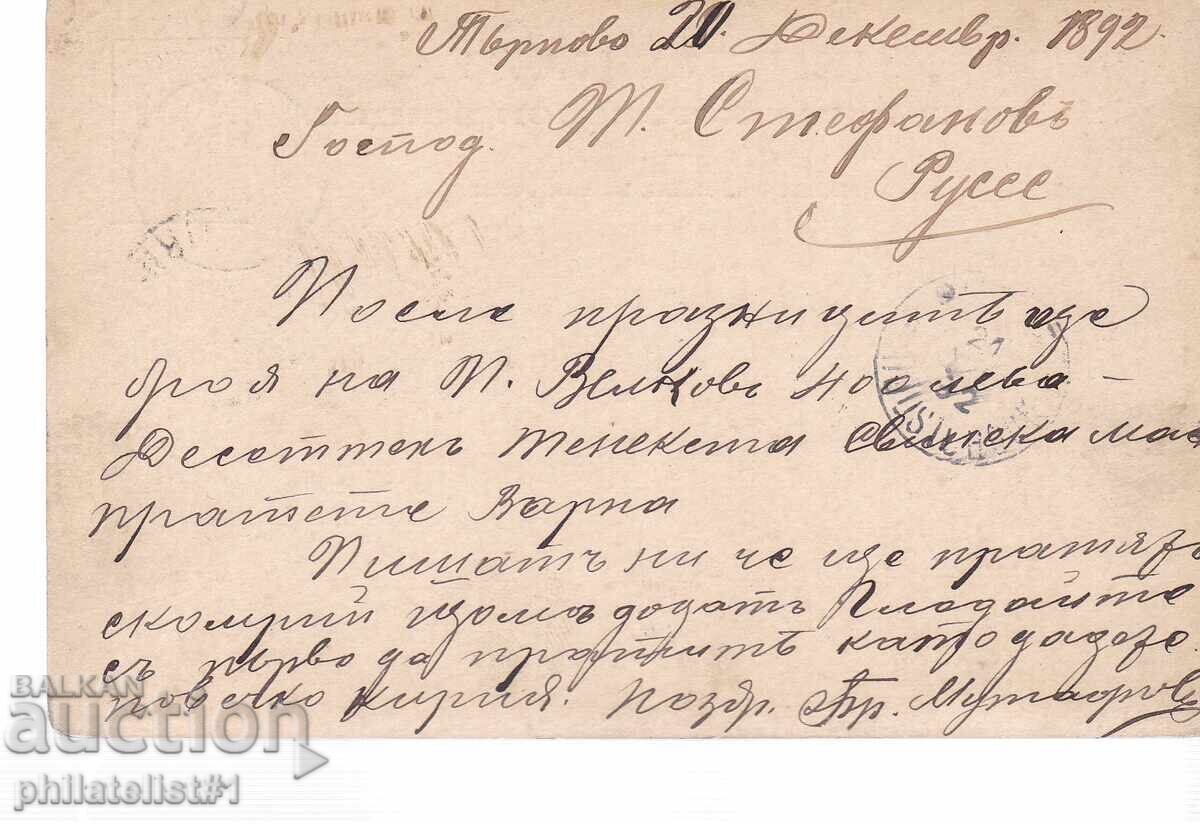 Търново 20. Декемвр. 1892.
Господ. Т. Стефановъ
Руссе
После празницитѣ ще
броя на П. Вѣлковъ
Десеттехъ тенекета свинска мас
пратете Варна
Пишатъ ни че ще пратятъ
скомрий щомъ додатъ Гледайте
съ първо да пратитѣ като дадете
повечко кирия. Поздр. Бр. Мутафовъ
BALKAN
auction
philatelist#1